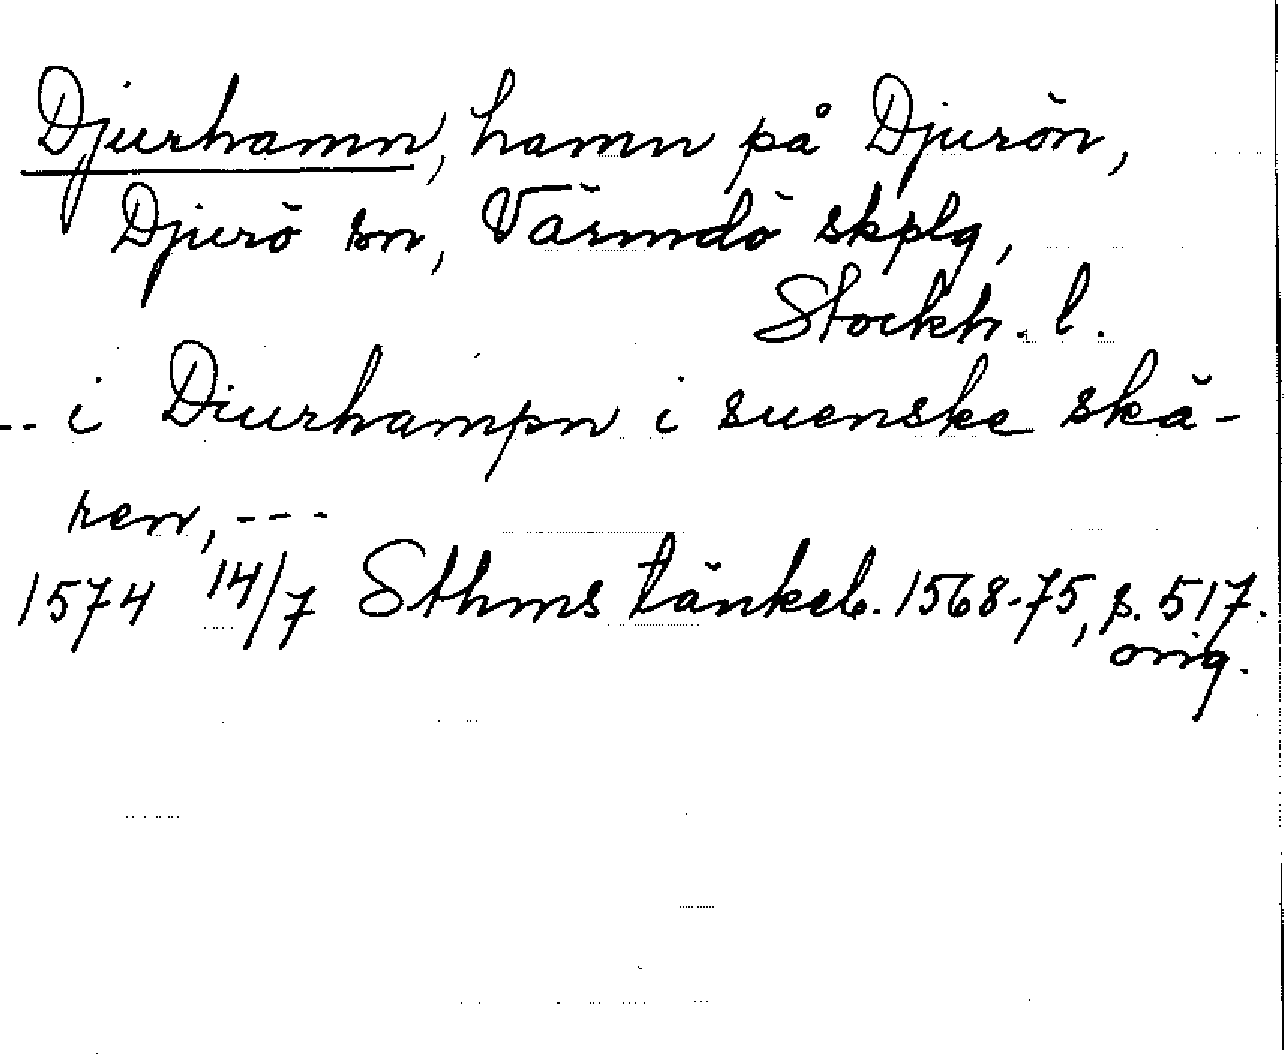 Djurhamn, hamn på Djurön,
Djurö sn, Värmdö skplg,
Stockh. l.
-- i Diurhampn i suenske skä-
ren, ---
1574 14/7 Sthms tänkeb. 1568-75, s. 517.
orig.